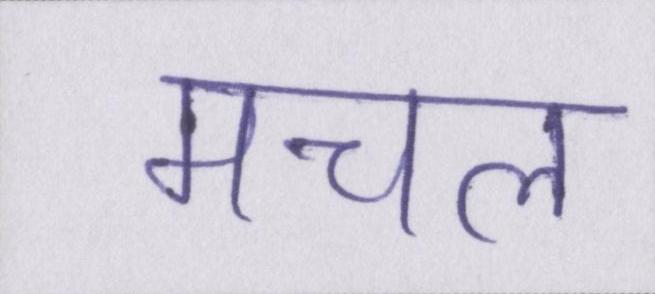 मचल